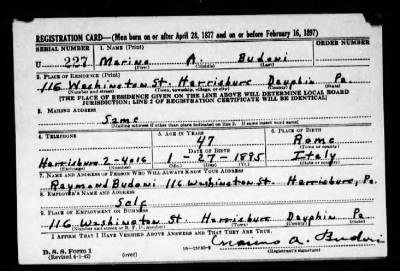 REGISTRATION CARD—(Men born on or after April 28, 1877 and on or before February 16, 1897)
SERIAL NUMBER 1. NAME (Print) ORDER NUMBER
U 227 Marino A. Budani
(First) (Middle) (Last)
2. PLACE OF RESIDENCE (Print)
116 Washington St. Harrisburg Dauphin Pa.
(Number and street) (Town, township, village, or city) (County) (State)
[THE PLACE OF RESIDENCE GIVEN ON THE LINE ABOVE WILL DETERMINE LOCAL BOARD
JURISDICTION; LINE 2 OF REGISTRATION CERTIFICATE WILL BE IDENTICAL]
3. MAILING ADDRESS
Same
[Mailing address if other than place indicated on line 2. If same insert word same]
4. TELEPHONE 5. AGE IN YEARS 6. PLACE OF BIRTH
47 Rome
DATE OF BIRTH (Town or county)
Harrisburg 2-4016 1-27-1895 Italy
7. NAME AND ADDRESS OF PERSON WHO WILL ALWAYS KNOW YOUR ADDRESS
Raymond Budani 116 Washington St. Harrisburg, Pa.
8. EMPLOYER'S NAME AND ADDRESS
Self
9. PLACE OF EMPLOYMENT OR BUSINESS
116 Washington St. Harrisburg Dauphin Pa.
(Number and street or R. F. D. number) (Town) (County) (State)
I AFFIRM THAT I HAVE VERIFIED ABOVE ANSWERS AND THAT THEY ARE TRUE.
D. S. S. Form 1
(Revised 4-1-42) (over) (Registrant's signature)